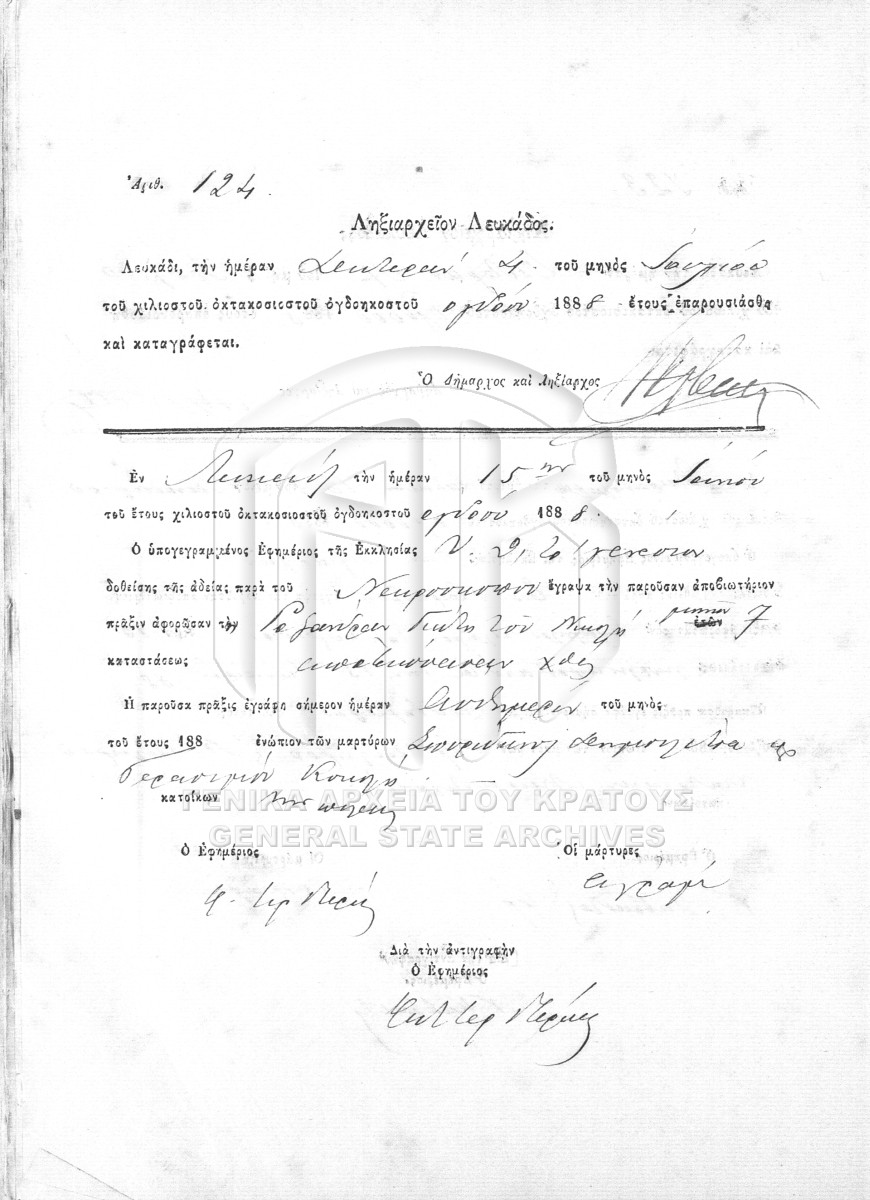 Ἀριθ. 124.
Ληξιαρχεῖον Λευκάδος.
Λευκάδι, τὴν ἡμέραν Δευτέραν 4. τοῦ μηνὸς Ἰουλίου
τοῦ χιλιοστοῦ. ὀκτακοσιοστοῦ ὀγδοηκοστοῦ ὀγδόου 1888 ἔτους ἐπαρουσιάσθη
καὶ καταγράφεται.
Ὁ Δήμαρχος καὶ ληξίαρχος
Ἐν τὴν ἡμέραν 15ην τοῦ μηνὸς Ἰουνίου
τοῦ ἔτους χιλιοστοῦ ὀκτακοσιοστοῦ ὀγδοηκοστοῦ ὀγδόου 1888.
Ὁ ὑπογεγραμμένος Ἐφημέριος τῆς Ἐκκλησίας
δοθείσης τῆς ἀδείας παρὰ τοῦ Νεκροσκόπου ἔγραψα τὴν παροῦσαν ἀποβιωτήριον
πρᾶξιν ἀφορῶσαν τὴν τοῦ Νικολῆ μηνῶν ἐτῶν 7
καταστάσεως ἀποβιώσασαν χθὲς
Ἡ παροῦσα πρᾶξις ἐγράφη σήμερον ἡμέραν αὐθημερὸν τοῦ μηνὸς
τοῦ ἔτους 188 ἐνώπιον τῶν μαρτύρων Σπυρίδωνος
Γερασίμου
κατοίκων τῆς πόλεως
ΓΕΝΙΚΑ ΑΡΧΕΙΑ ΤΟΥ ΚΡΑΤΟΥΣ
GENERAL STATE ARCHIVES
Ὁ Ἐφημέριος Οἱ μάρτυρες
ἀγράμ
Διὰ τὴν ἀντιγραφὴν
Ὁ Ἐφημέριος